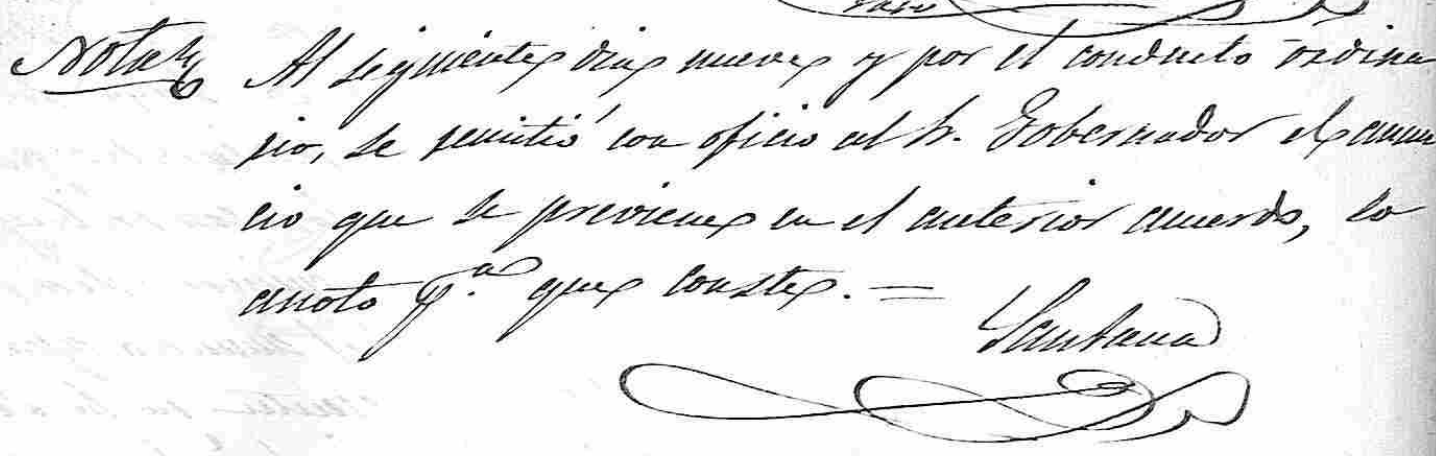 Nota Al siguiente dia nueve y por el conducto ordina
rio, se remitió con oficio al Sr. Gobernador el anun
cio que se previene en el anterior acuerdo, lo
anoto p.ª que conste. =
Santana